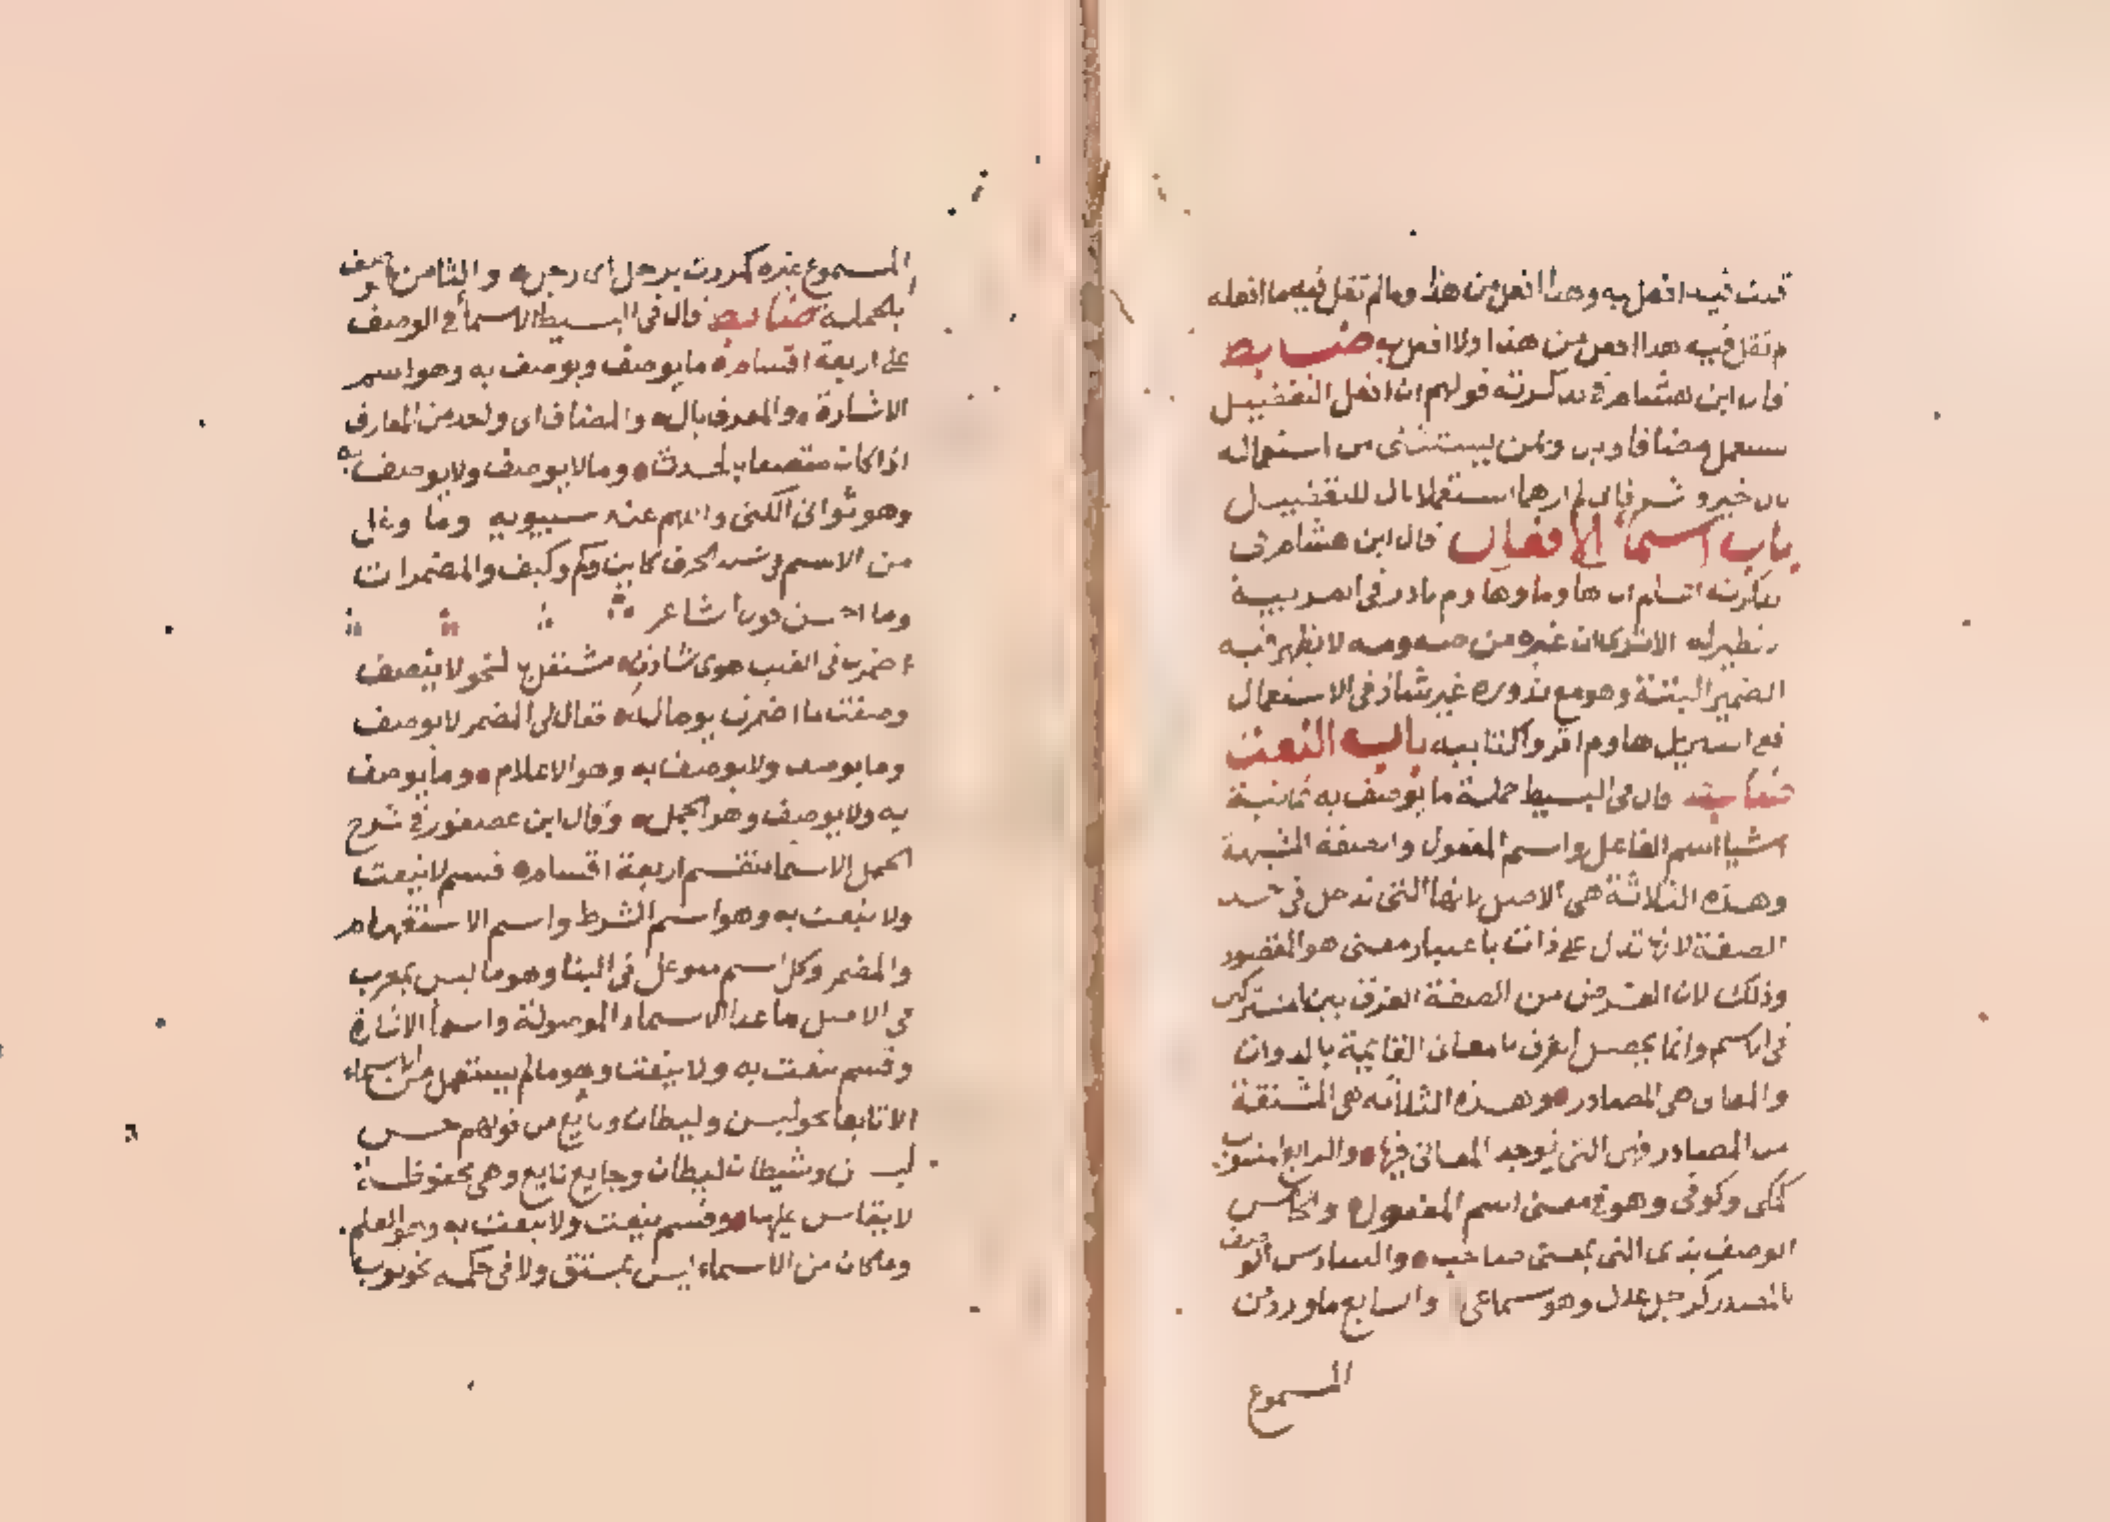 قلت فيه افعل به وهذا افعل من هذا وما لم تقل فيه ما افعله
لم تقل فيه هذا افعل من هذا ولا افعل به ضابط
قال ابن هشام في تذكرته قولهم ان افعل التفضيل
يستعمل مضافا وبال وبمن يستثنى من استعماله
بال خير وشر فاني لم ارهما استعملا بال للتفضيل
باب اسماء الافعال قال ابن هشام في
تذكرته اعلم ان هاوما وهاوم نادر في العربية
لا نظير له الا ترى ان غيره من صه ومه لا يظهر فيه
الضمير البتة وهو مع ندوره غير شاذ في الاستعمال
ففي التنزيل هاوم اقروا كتابيه باب النعت
ضابط قال في البسيط جملة ما يوصف به ثمانية
اشيا اسم الفاعل واسم المفعول والصفة المشبهة
وهذه الثلاثة هي الاصل لانها التي تدخل في حد
الصفة لانها تدل على ذات باعتبار معنى هو المقصود
وذلك لان الغرض من الصفة الفرق بين المشتركين
في الاسم وانما يحصل الفرق بالمعاني القايمة بالذوات
والمعاني هي المصادر وهذه الثلاثة هي المشتقة
من المصادر فهي التي توجد المعاني فيها والرابع المنسوب
كمكي وكوفي وهو في معنى اسم المفعول والخامس
الوصف بذي التي بمعنى صاحب والسادس الوصف
بالمصدر كرجل عدل وهو سماعي والسابع ما ورد من
المسموع
المسموع غيره كمررت برجل اي رجل والثامن الوصف
بالجملة ضابط قال في البسيط الاسما في الوصف
على اربعة اقسام ما يوصف ويوصف به وهو اسم
الاشارة والمعرف بال والمضاف الى واحد من المعارف
اذا كان متصفا بالحدث وما لا يوصف ولا يوصف به
وهو ثواني الكنى واللهم عند سيبويه وما وغل
من الاسم في شبه الحرف كاين وكم وكيف والمضمرات
وما احسن قول الشاعر
اضمرت في القلب هوى شادن مشتغل بالنحو لا ينصف
وصفت ما اضمرت يوما له فقال لي المضمر لا يوصف
وما يوصف ولا يوصف به وهو الاعلام وما يوصف
به ولا يوصف وهو الجمل وقال ابن عصفور في شرح
الجمل الاسما تنقسم اربعة اقسام قسم لا ينعت
ولا ينعت به وهو اسم الشرط واسم الاستفهام
والمضمر وكل اسم متوغل في البنا وهو ما ليس بمعرب
في الاصل ما عدا الاسماء الموصولة واسما الاشارة
وقسم ينعت به ولا ينعت وهو ما لم يستعمل من الاسماء
الا تابعا نحو ليسن وليطان ونايع من قولهم حسن
ليسن وشيطان ليطان وجايع نايع وهي محفوظة
لا يقاس عليها وقسم ينعت ولا ينعت به وهو العلم
وما كان من الاسماء ليس بمشتق ولا في حكمه نحو ثوب